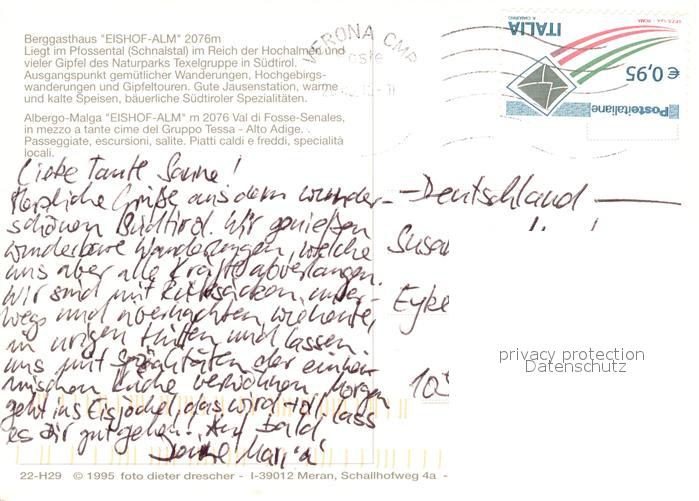 Berggasthaus "EISHOF-ALM" 2076m
Liegt im Pfossental (Schnalstal) im Reich der Hochalmen und
vieler Gipfel des Naturparks Texelgruppe in Südtirol.
Ausgangspunkt gemütlicher Wanderungen, Hochgebirgs-
wanderungen und Gipfeltouren. Gute Jausenstation, warme
und kalte Speisen, bäuerliche Südtiroler Spezialitäten.
Albergo-Malga "EISHOF-ALM" m 2076 Val di Fosse-Senales,
in mezzo a tante cime del Gruppo Tessa - Alto Adige.
Passeggiate, escursioni, salite. Piatti caldi e freddi, specialità
locali.
Liebe Tante Sanne!
Herzliche Grüße aus dem wunder-
schönen Südtirol. Wir genießen
wunderbare Wanderungen, welche
uns aber alle Kräfte abverlangen.
Wir sind mit Rucksäcken unter-
wegs und übernachten wie heute,
in urigen Hütten und lassen
uns mit Spezialitäten der einhei-
mischen Küche verwöhnen. Morgen
geht ins Eisjöchel, das wird toll. Lass
es Dir gut gehen! Auf bald
Deine
22-H29 © 1995 foto dieter drescher - I-39012 Meran, Schallhofweg 4a -
VERONA CMP
Poste
ITALIA
€0,95
Posteitaliane
Deutschland
Susan
Eyke
10
privacy protection
Datenschutz